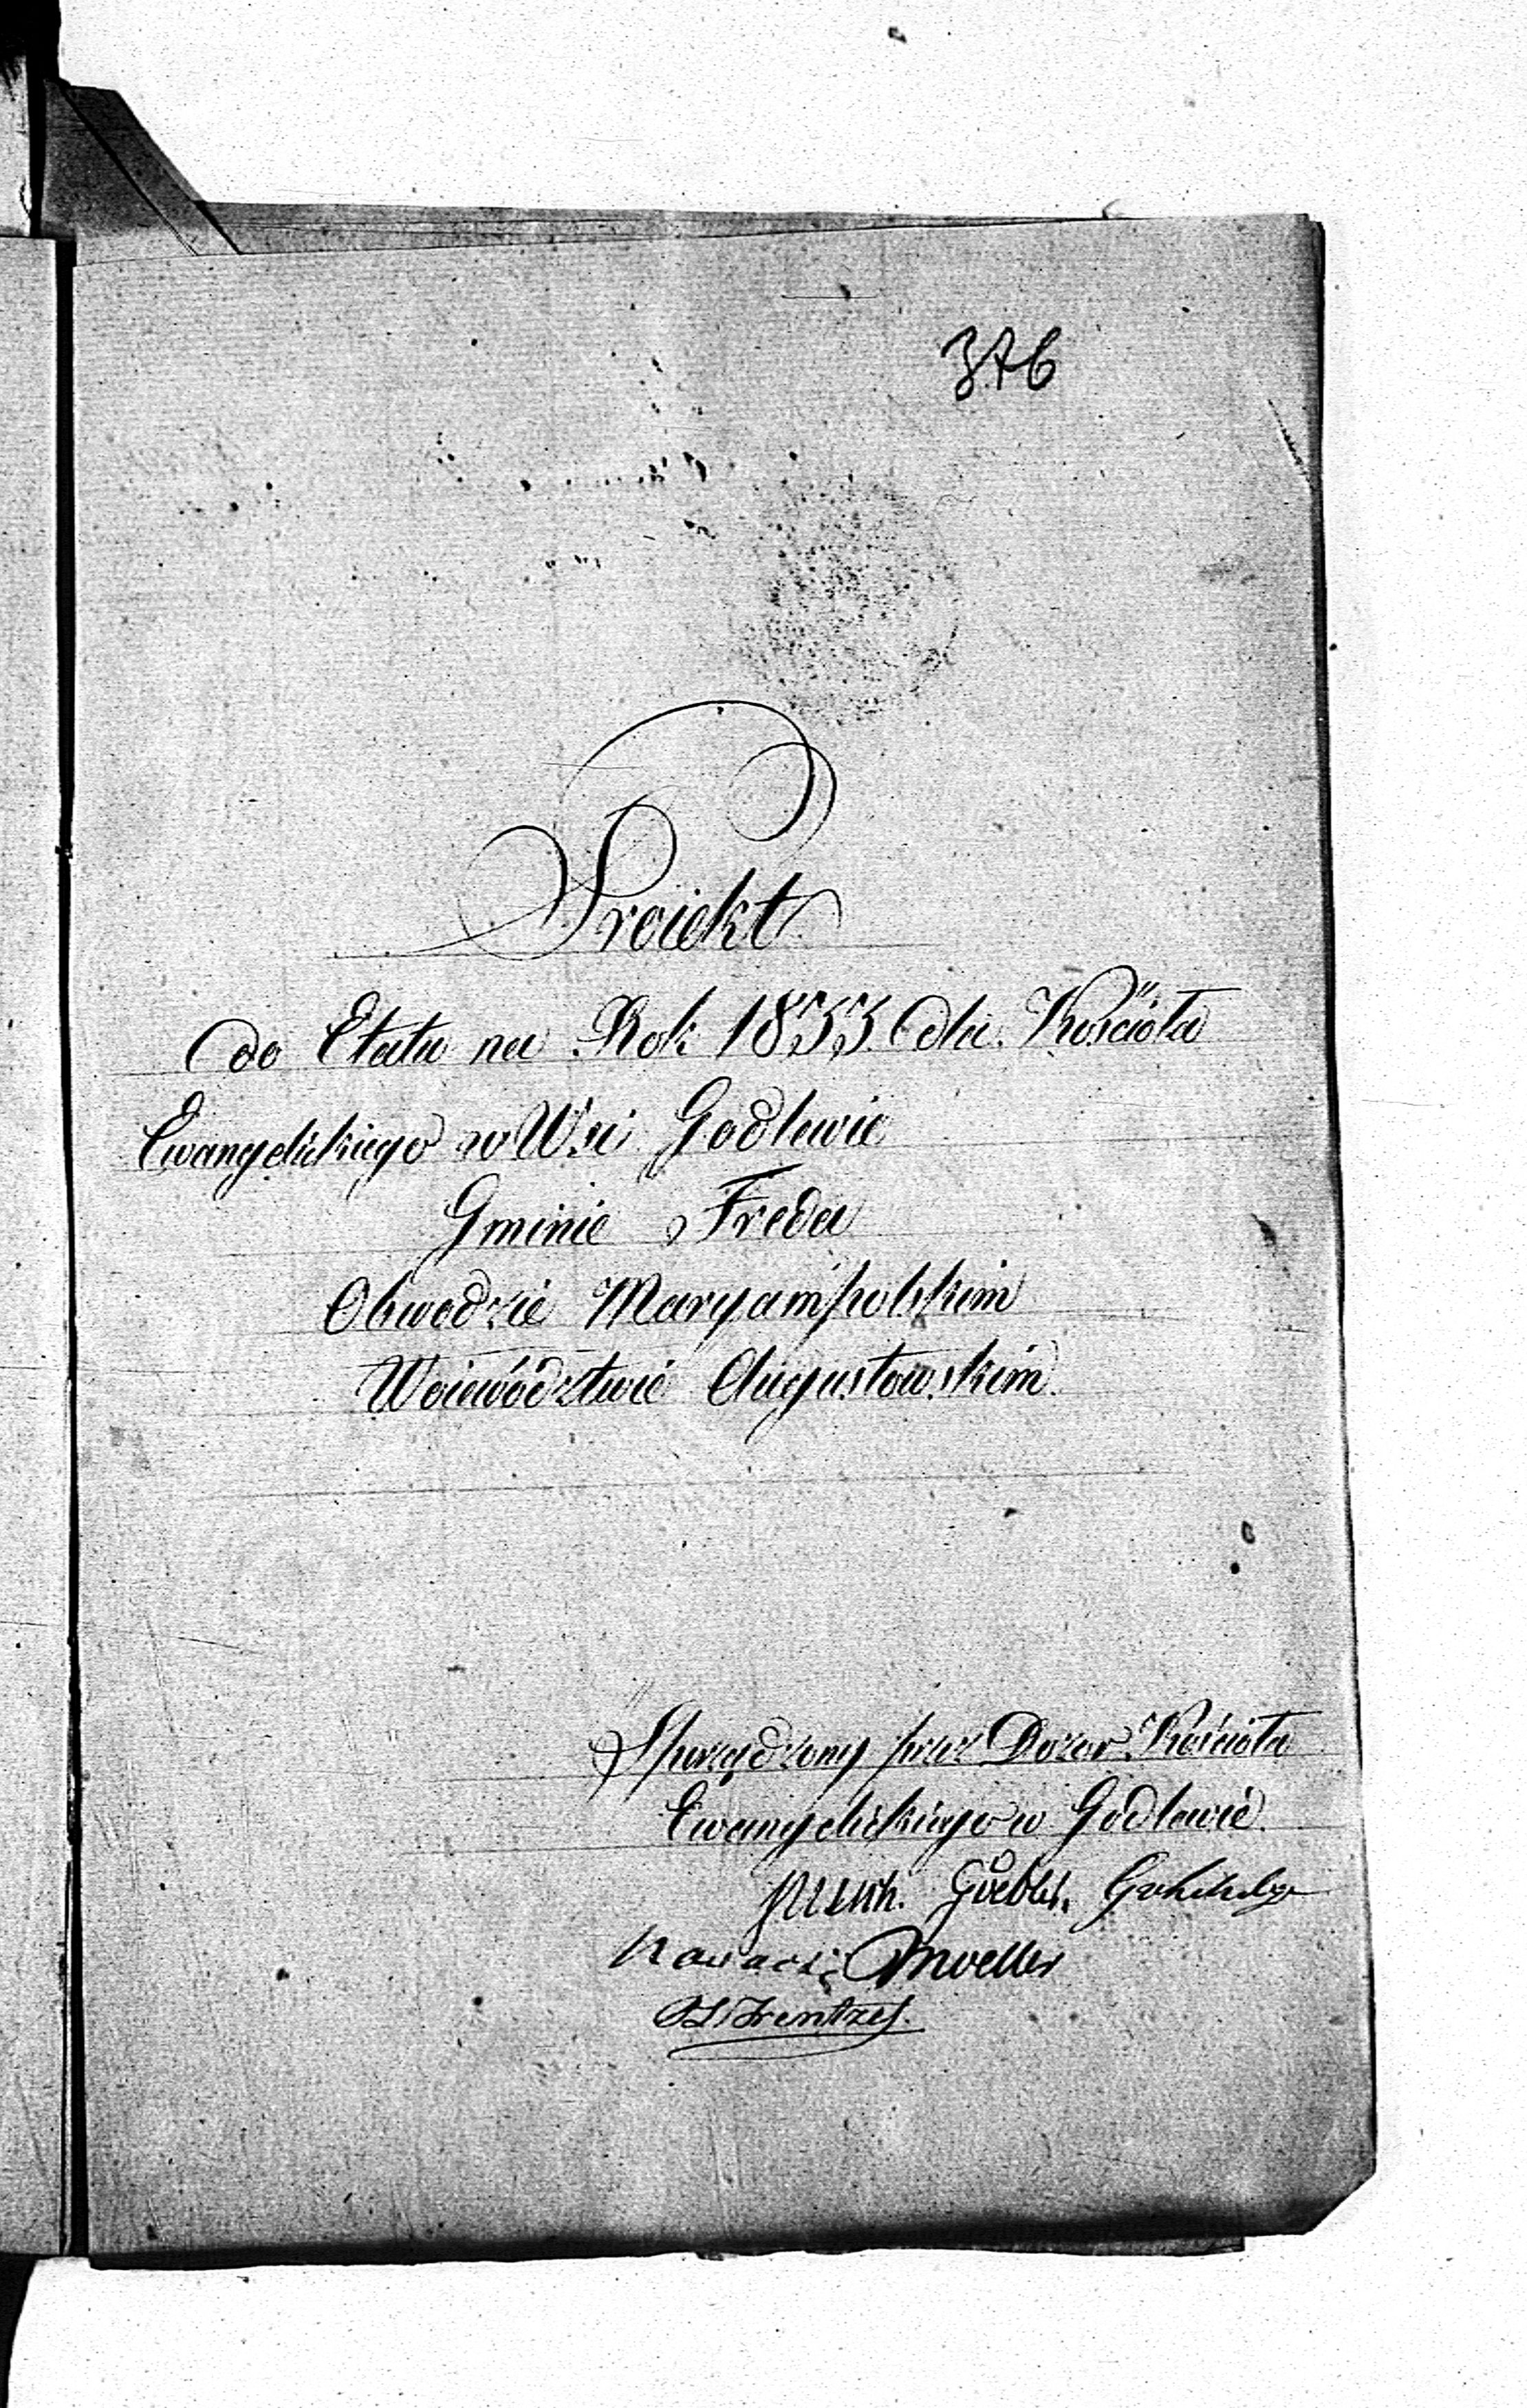 376
Proiekt
do Etatu na Rok 1833 dla Kościoła
Ewangelickiego w Wsi Godlewie
Gminie Freda
Obwodzie Maryampolskim
Woiewództwie Augustowskim.
Sporządzony przez Dozor Kościoła
Ewangelickiego w Godlewie.
Moeller